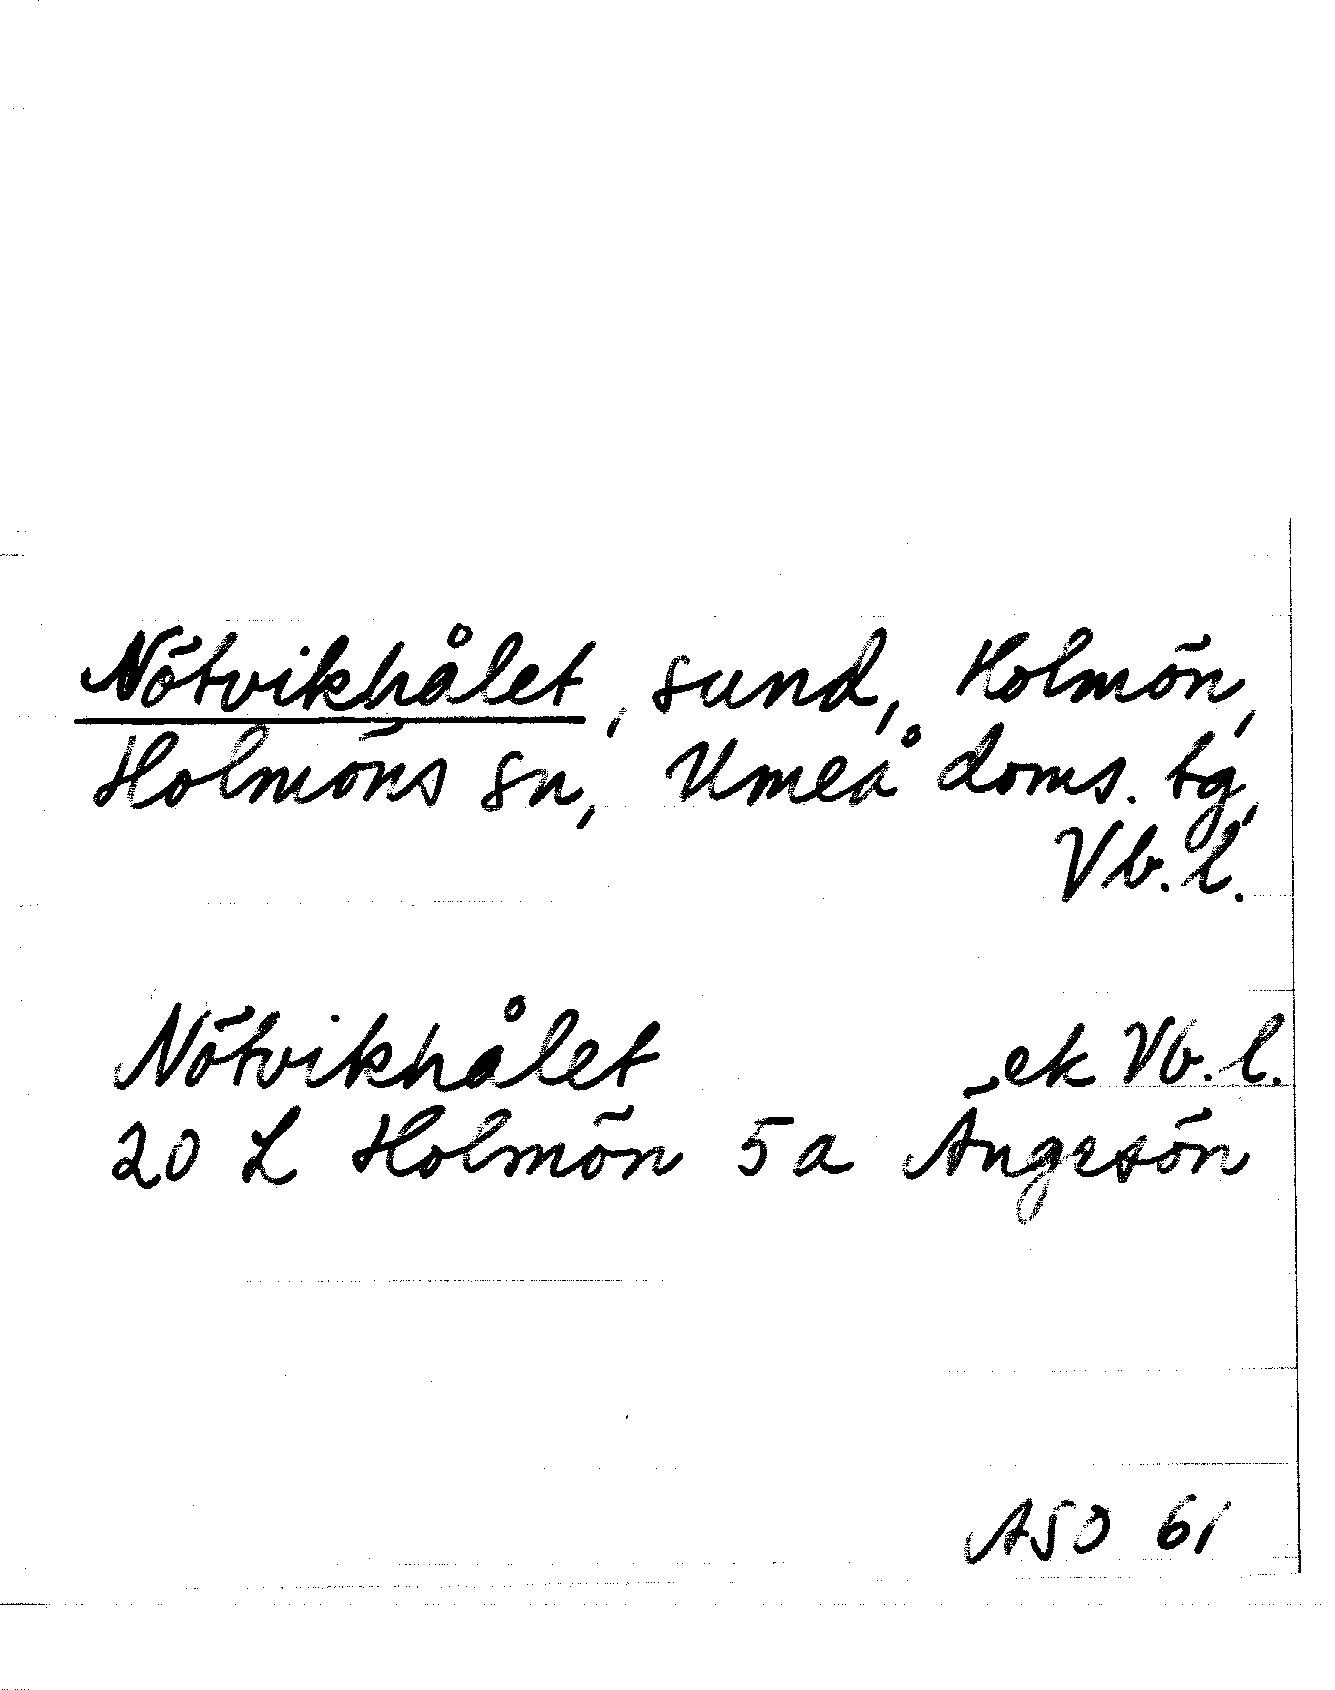 Nötvikhålet, sund, Holmön,
Holmöns sn, Umeå doms. tg,
Vb. l.
Nötvikhålet ek Vb. l.
20 L Holmön 5a Ängesön
ASO 61